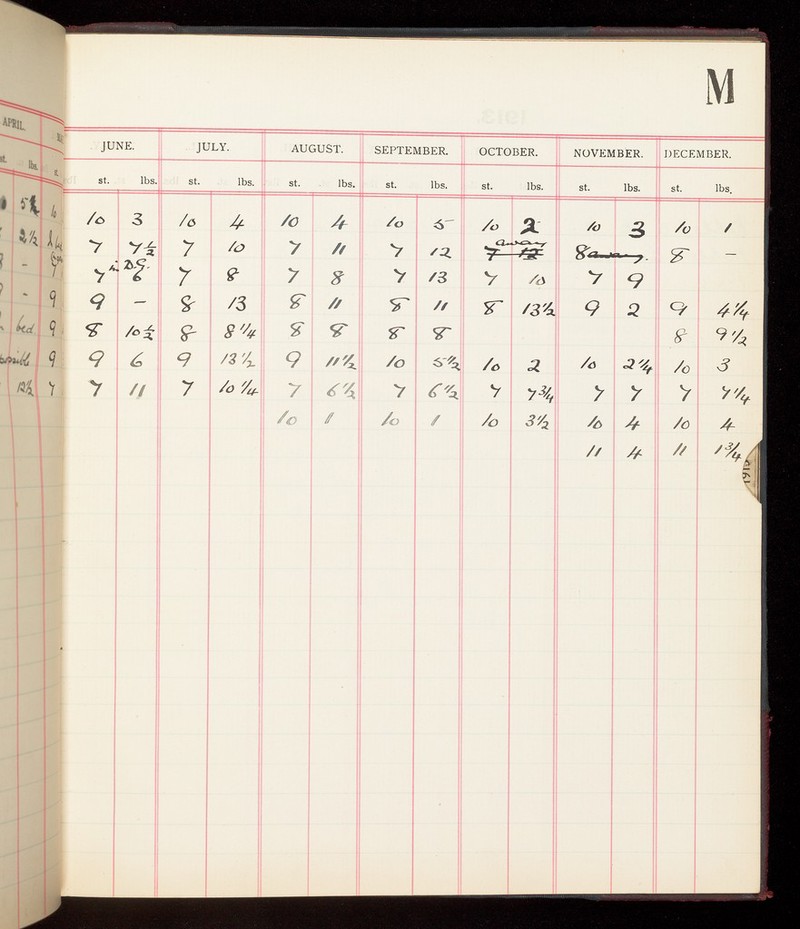 M
APRIL.
JUNE. JULY. AUGUST. SEPTEMBER. OCTOBER. NOVEMBER. DECEMBER.
st. lbs. st. st. lbs. st. lbs. st. lbs. st. lbs. st. lbs. st. lbs. st. lbs.
10 3 10 4 10 4 10 5 10 2 10 3 10 1
2½ 7 7½ 7 10 7 11 7 12 7 12 away 8 away. 8 –
– in D.G.
7 6 7 8 7 8 7 13 7 10 7 9
– 9 9 – 8 13 8 11 8 11 8 13½ 9 2 9 4¼
bed 9 8 10½ 8 8¼ 8 8 8 8 8 9½
9 9 6 9 13½ 9 11½ 10 5½ 10 2 10 2¼ 10 3
12½ 7 7 11 7 10¼ 7 6½ 7 6½ 7 7¾ 7 7 7 7¼
10 1 10 1 10 3½ 10 4 10 4
11 4 11 1¾